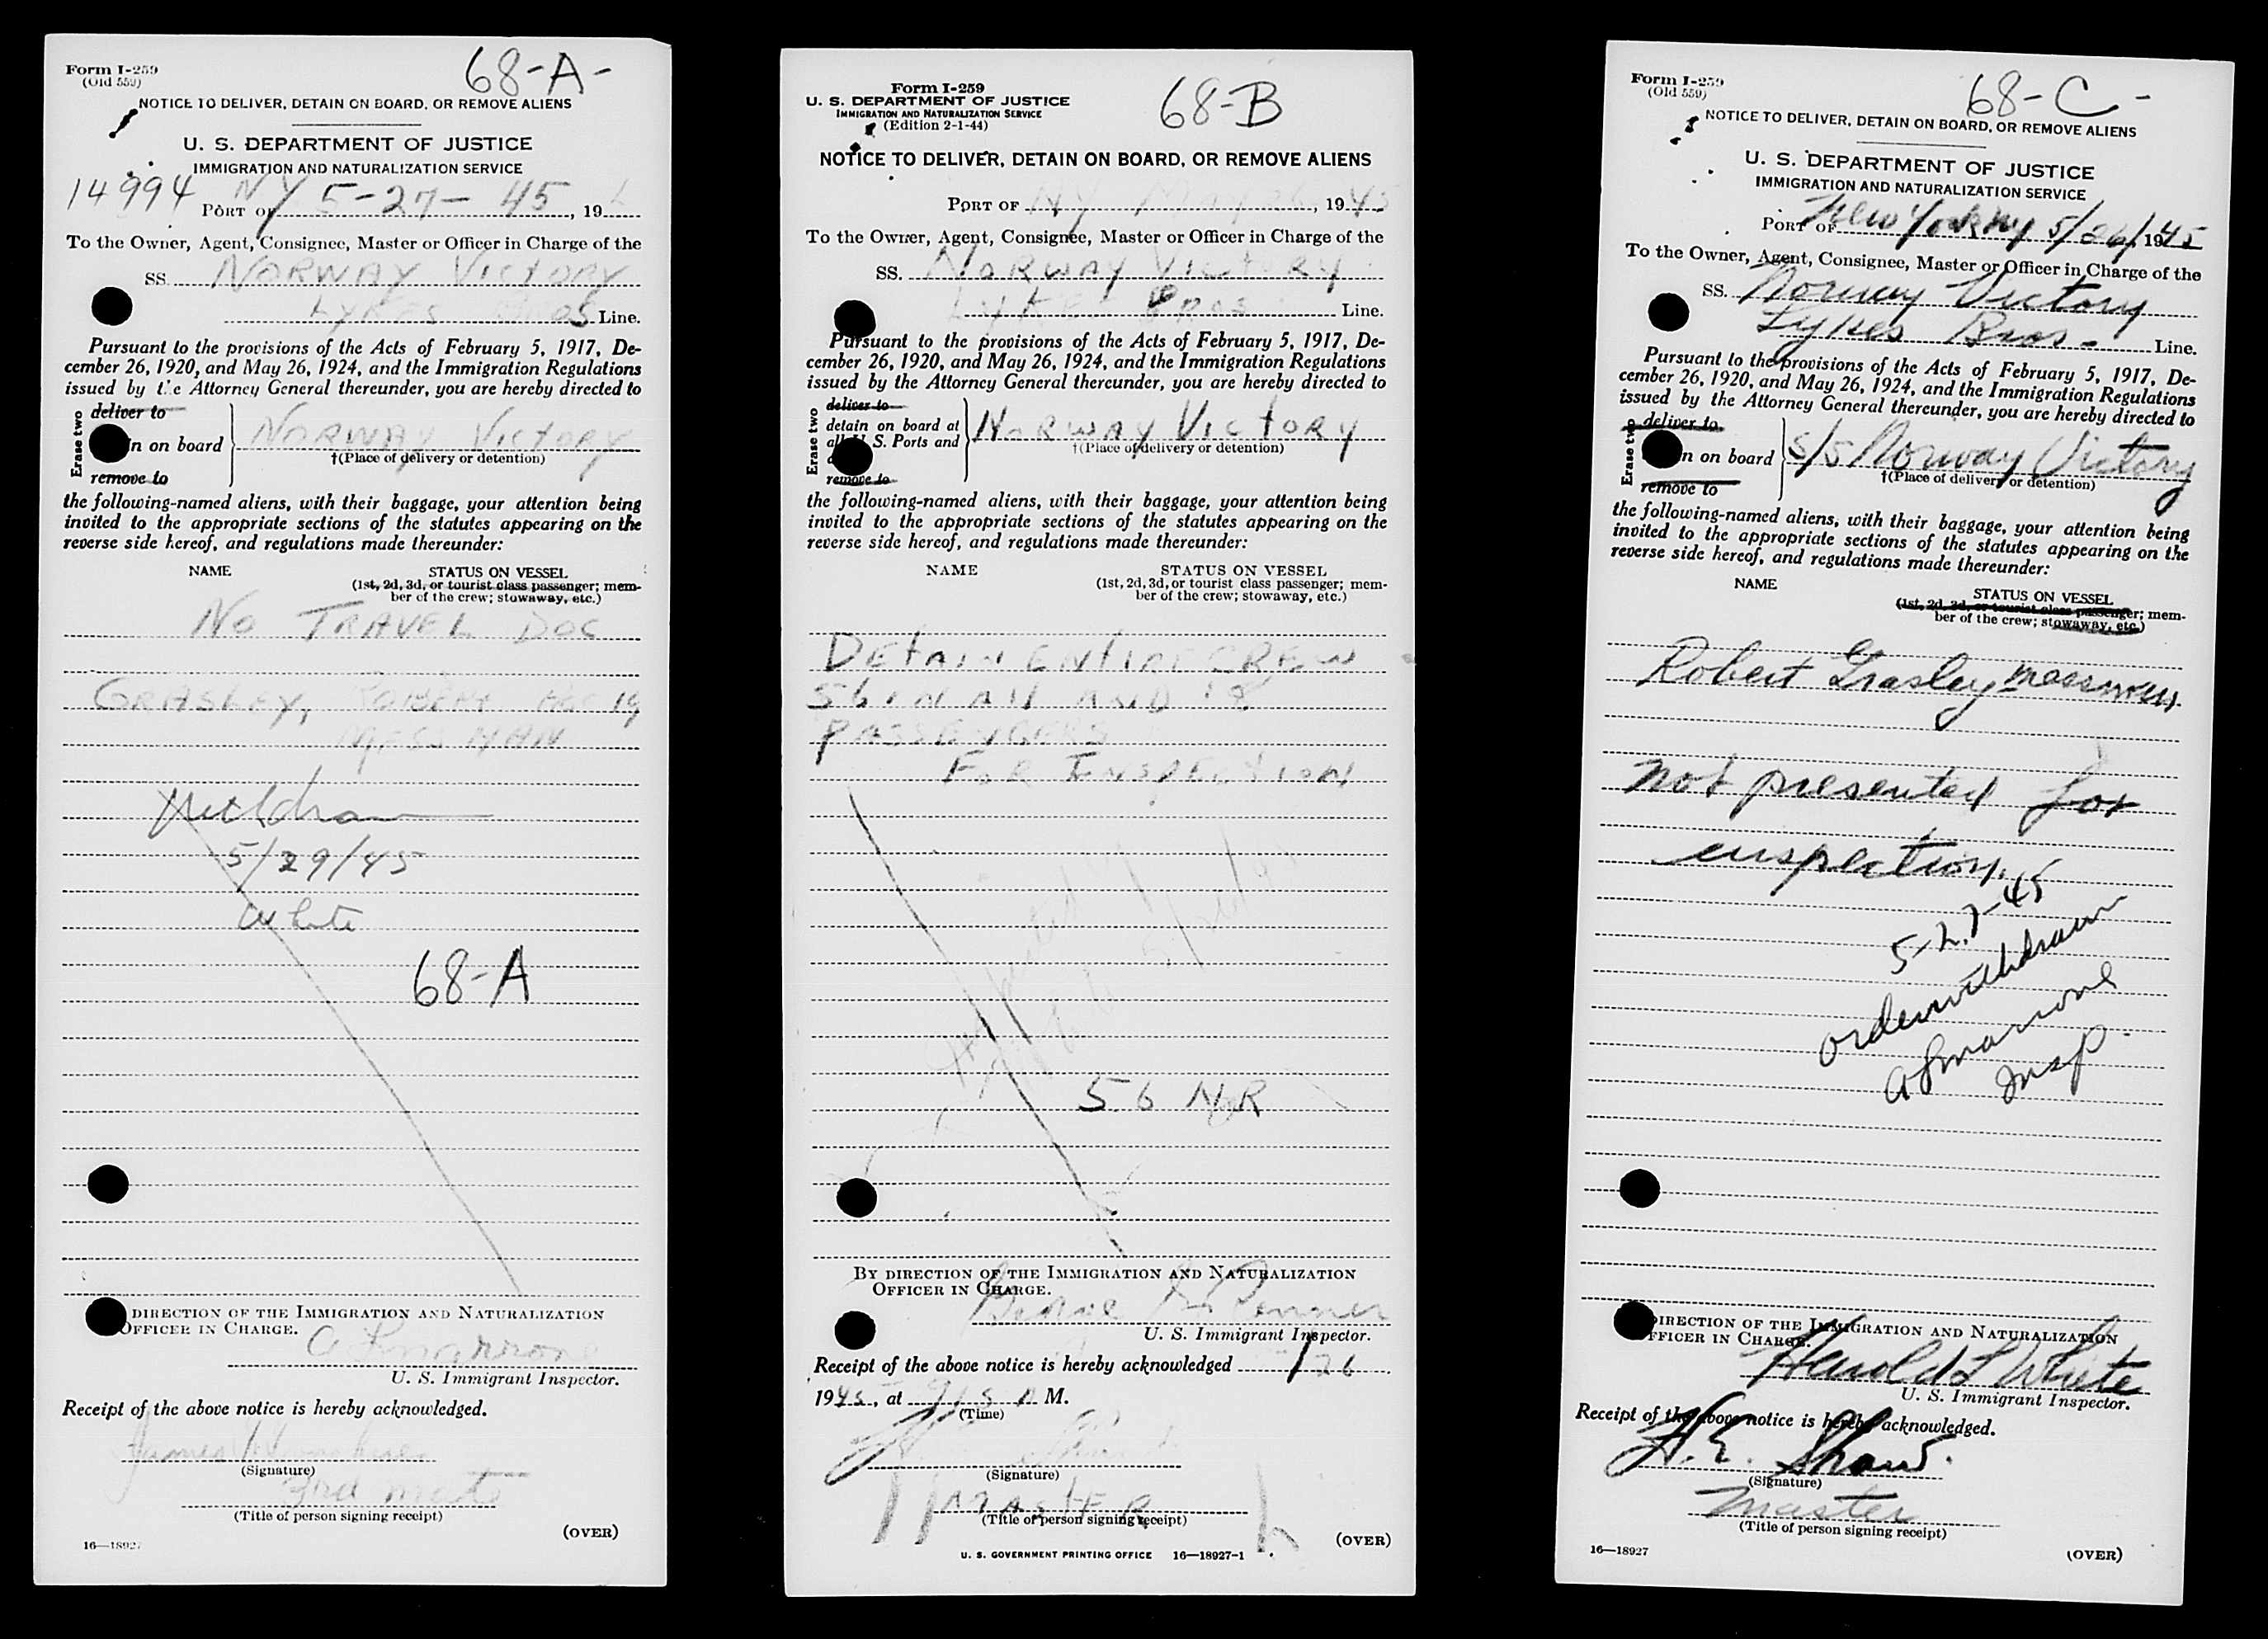 Form I-259
(Old 559)
68-A-
NOTICE TO DELIVER, DETAIN ON BOARD, OR REMOVE ALIENS
U. S. DEPARTMENT OF JUSTICE
IMMIGRATION AND NATURALIZATION SERVICE
14994 PORT OF NY 5-27-45, 19
To the Owner, Agent, Consignee, Master or Officer in Charge of the
SS. NORWAY VICTORY
LYKES BROS Line.
Pursuant to the provisions of the Acts of February 5, 1917, De-
cember 26, 1920, and May 26, 1924, and the Immigration Regulations
issued by the Attorney General thereunder, you are hereby directed to
Erase two
deliver to
n on board
remove to
NORWAY VICTORY
†(Place of delivery or detention)
the following-named aliens, with their baggage, your attention being
invited to the appropriate sections of the statutes appearing on the
reverse side hereof, and regulations made thereunder:
NAME STATUS ON VESSEL
(1st, 2d, 3d, or tourist class passenger; mem-
ber of the crew; stowaway, etc.)
NO TRAVEL DOC
GRASLEY, ROBERT AGE 19
MESSMAN
Withdrawn
5/29/45
White
68-A
DIRECTION OF THE IMMIGRATION AND NATURALIZATION
OFFICER IN CHARGE.
U. S. Immigrant Inspector.
Receipt of the above notice is hereby acknowledged.
James
(Signature)
3rd mate
(Title of person signing receipt)
(OVER)
16—18927
Form I-259
U. S. DEPARTMENT OF JUSTICE
IMMIGRATION AND NATURALIZATION SERVICE
(Edition 2-1-44)
68-B
NOTICE TO DELIVER, DETAIN ON BOARD, OR REMOVE ALIENS
PORT OF NY May 26, 1945
To the Owner, Agent, Consignee, Master or Officer in Charge of the
SS. NORWAY VICTORY
LYKES BROS Line.
Pursuant to the provisions of the Acts of February 5, 1917, De-
cember 26, 1920, and May 26, 1924, and the Immigration Regulations
issued by the Attorney General thereunder, you are hereby directed to
Erase two
deliver to
detain on board at
all U. S. Ports and
remove to
NORWAY VICTORY
†(Place of delivery or detention)
the following-named aliens, with their baggage, your attention being
invited to the appropriate sections of the statutes appearing on the
reverse side hereof, and regulations made thereunder:
NAME STATUS ON VESSEL
(1st, 2d, 3d, or tourist class passenger; mem-
ber of the crew; stowaway, etc.)
DETAIN ENTIRE CREW
56 IN ALL AND 18
PASSENGERS
FOR INSPECTION
56 NR
BY DIRECTION OF THE IMMIGRATION AND NATURALIZATION
OFFICER IN CHARGE.
U. S. Immigrant Inspector.
Receipt of the above notice is hereby acknowledged /26
1945, at 915 A M.
(Time)
(Signature)
MASTER
(Title of person signing receipt)
(OVER)
U. S. GOVERNMENT PRINTING OFFICE 16—18927-1
Form I-259
(Old 559)
68-C-
NOTICE TO DELIVER, DETAIN ON BOARD, OR REMOVE ALIENS
U. S. DEPARTMENT OF JUSTICE
IMMIGRATION AND NATURALIZATION SERVICE
PORT OF New York NY 5/26/1945
To the Owner, Agent, Consignee, Master or Officer in Charge of the
SS. Norway Victory
Lykes Bros- Line.
Pursuant to the provisions of the Acts of February 5, 1917, De-
cember 26, 1920, and May 26, 1924, and the Immigration Regulations
issued by the Attorney General thereunder, you are hereby directed to
Erase two
deliver to
n on board
remove to
S/S Norway Victory
†(Place of delivery or detention)
the following-named aliens, with their baggage, your attention being
invited to the appropriate sections of the statutes appearing on the
reverse side hereof, and regulations made thereunder:
NAME STATUS ON VESSEL
(1st, 2d, 3d, or tourist class passenger; mem-
ber of the crew; stowaway, etc.)
Robert Grasley messman
not presented for
inspection.
5-27-45
order withdrawn
Insp.
DIRECTION OF THE IMMIGRATION AND NATURALIZATION
OFFICER IN CHARGE.
Harold L White
U. S. Immigrant Inspector.
Receipt of the above notice is hereby acknowledged.
H. E. Shaw.
(Signature)
master
(Title of person signing receipt)
16—18927
(OVER)